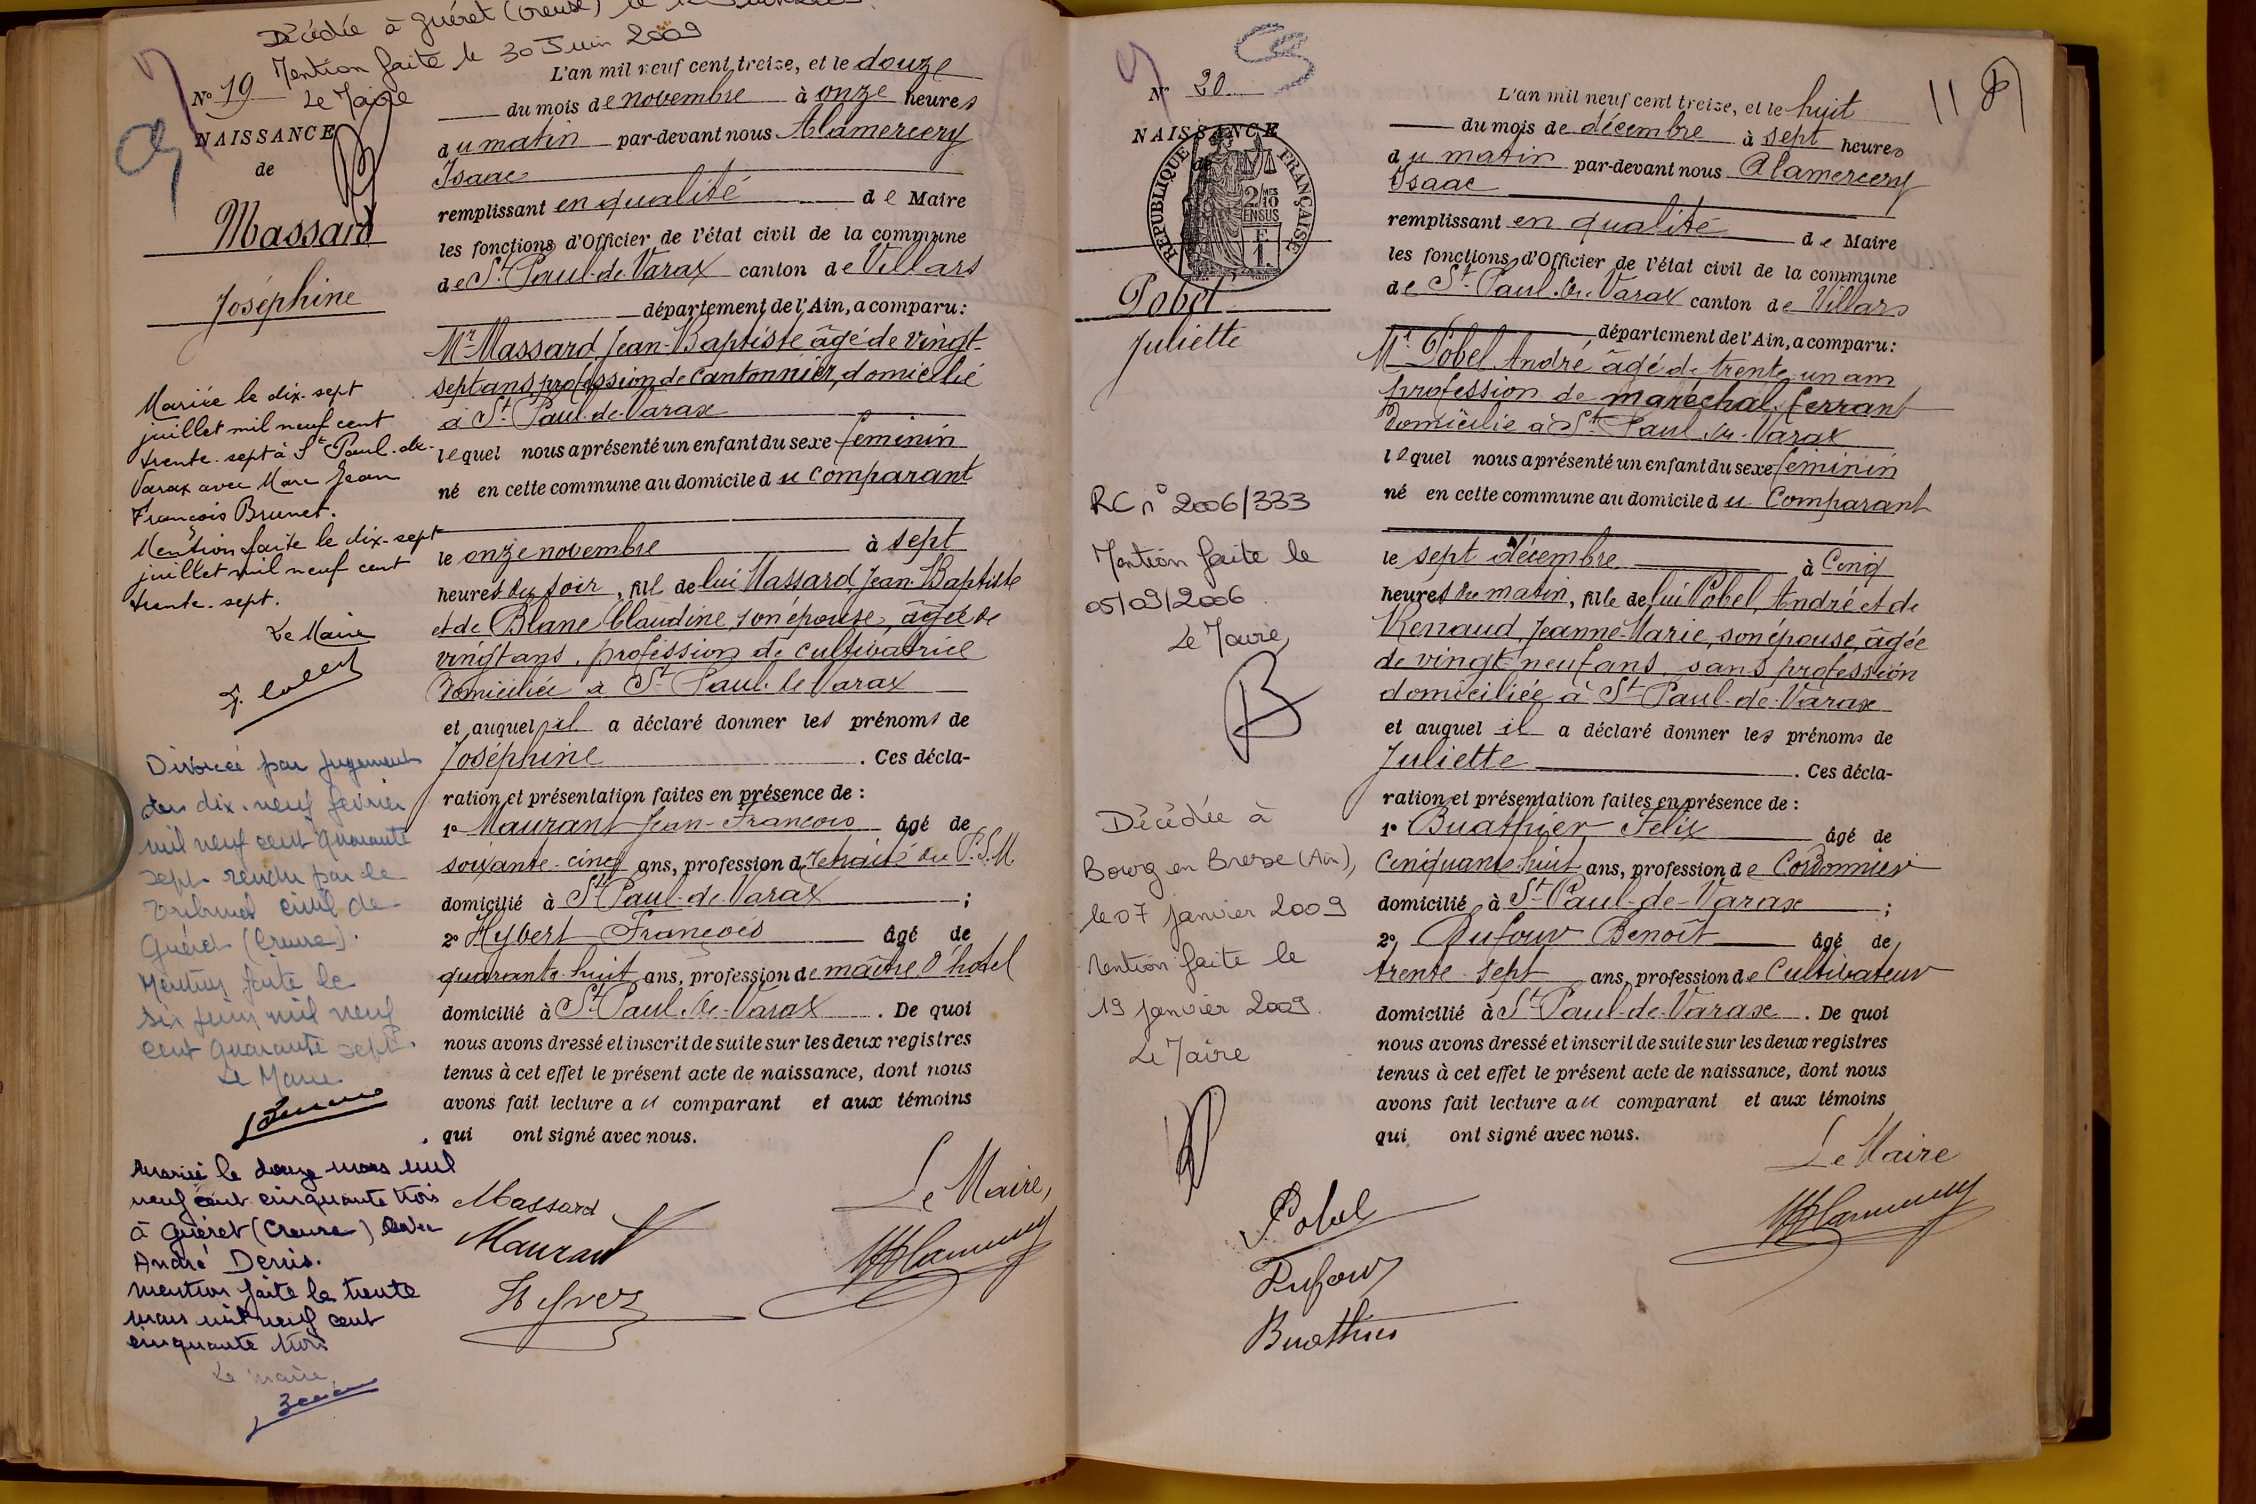 Décédée à Guéret (Creuse) le
Mention faite le 30 Juin 2009
Le Maire
N° 19
NAISSANCE
de
Massard
Joséphine
Mariée le dix-sept
juillet mil neuf cent
trente-sept à St Paul-de-
Varax avec Marc Jean
François Brunet.
Mention faite le dix-sept
juillet mil neuf cent
trente-sept.
Le Maire
Divorcée par jugement
du dix-neuf février
mil neuf cent quarante
sept rendu par le
Tribunal civil de
Guéret (Creuse).
Mention faite le
six juin mil neuf
cent quarante sept.
Le Maire
Mariée le douze mars mil
neuf cent cinquante trois
à Guéret (Creuse) avec
André Denis.
Mention faite le trente
mars mil neuf cent
cinquante trois
Le Maire,
L'an mil neuf cent treize, et le douze
du mois de novembre à onze heures
du matin par-devant nous Alamercery
Isaac
remplissant en qualité de Maire
les fonctions d'Officier de l'état civil de la commune
de St Paul-de-Varax canton de Villars
département de l'Ain, a comparu:
Mr Massard Jean-Baptiste âgé de vingt-
sept ans, profession de cantonnier, domicilié
à St Paul-de-Varax
lequel nous a présenté un enfant du sexe féminin
né en cette commune au domicile du comparant
le onze novembre à sept
heures du soir, fille de lui Massard Jean-Baptiste
et de Blanc Claudine son épouse, âgée de
vingt ans, profession de cultivatrice
domiciliée à St Paul de Varax
et auquel il a déclaré donner les prénoms de
Joséphine. Ces décla-
ration et présentation faites en présence de :
1° Maurant Jean-François âgé de
soixante-cinq ans, profession de retraité du P.L.M.
domicilié à St Paul-de-Varax ;
2° Hybert François âgé de
quarante-huit ans, profession de maître d'hôtel
domicilié à St Paul-de-Varax. De quoi
nous avons dressé et inscrit de suite sur les deux registres
tenus à cet effet le présent acte de naissance, dont nous
avons fait lecture au comparant et aux témoins
qui ont signé avec nous.
Le Maire,
Massard
Maurant
N° 20
NAISSANCE
de
REPUBLIQUE FRANÇAISE
2/10 EN SUS
Pobel
Juliette
RC n° 2006/333
Mention faite le
05/09/2006
Le Maire,
Décédée à
Bourg en Bresse (Ain),
le 07 janvier 2009
Mention faite le
19 janvier 2009.
Le Maire
11
L'an mil neuf cent treize, et le huit
du mois de décembre à sept heures
du matin par-devant nous Alamercery
Isaac
remplissant en qualité de Maire
les fonctions d'Officier de l'état civil de la commune
de St Paul-de-Varax canton de Villars
département de l'Ain, a comparu:
Mr Pobel André âgé de trente-un ans
profession de maréchal-ferrant
domicilié à St Paul-de-Varax
lequel nous a présenté un enfant du sexe féminin
né en cette commune au domicile du Comparant
le sept décembre à Cinq
heures du matin, fille de lui Pobel, André et de
Renaud Jeanne-Marie, son épouse, âgée
de vingt-neuf ans, sans profession
domiciliée à St Paul-de-Varax
et auquel il a déclaré donner les prénoms de
Juliette. Ces décla-
ration et présentation faites en présence de :
1° Buathier Félix âgé de
Cinquante-huit ans, profession de Cordonnier
domicilié à St Paul-de-Varax ;
2° Dufour Benoît âgé de
trente-sept ans, profession de Cultivateur
domicilié à St Paul-de-Varax. De quoi
nous avons dressé et inscrit de suite sur les deux registres
tenus à cet effet le présent acte de naissance, dont nous
avons fait lecture au comparant et aux témoins
qui ont signé avec nous.
Le Maire
Pobel
Dufour
Buathier